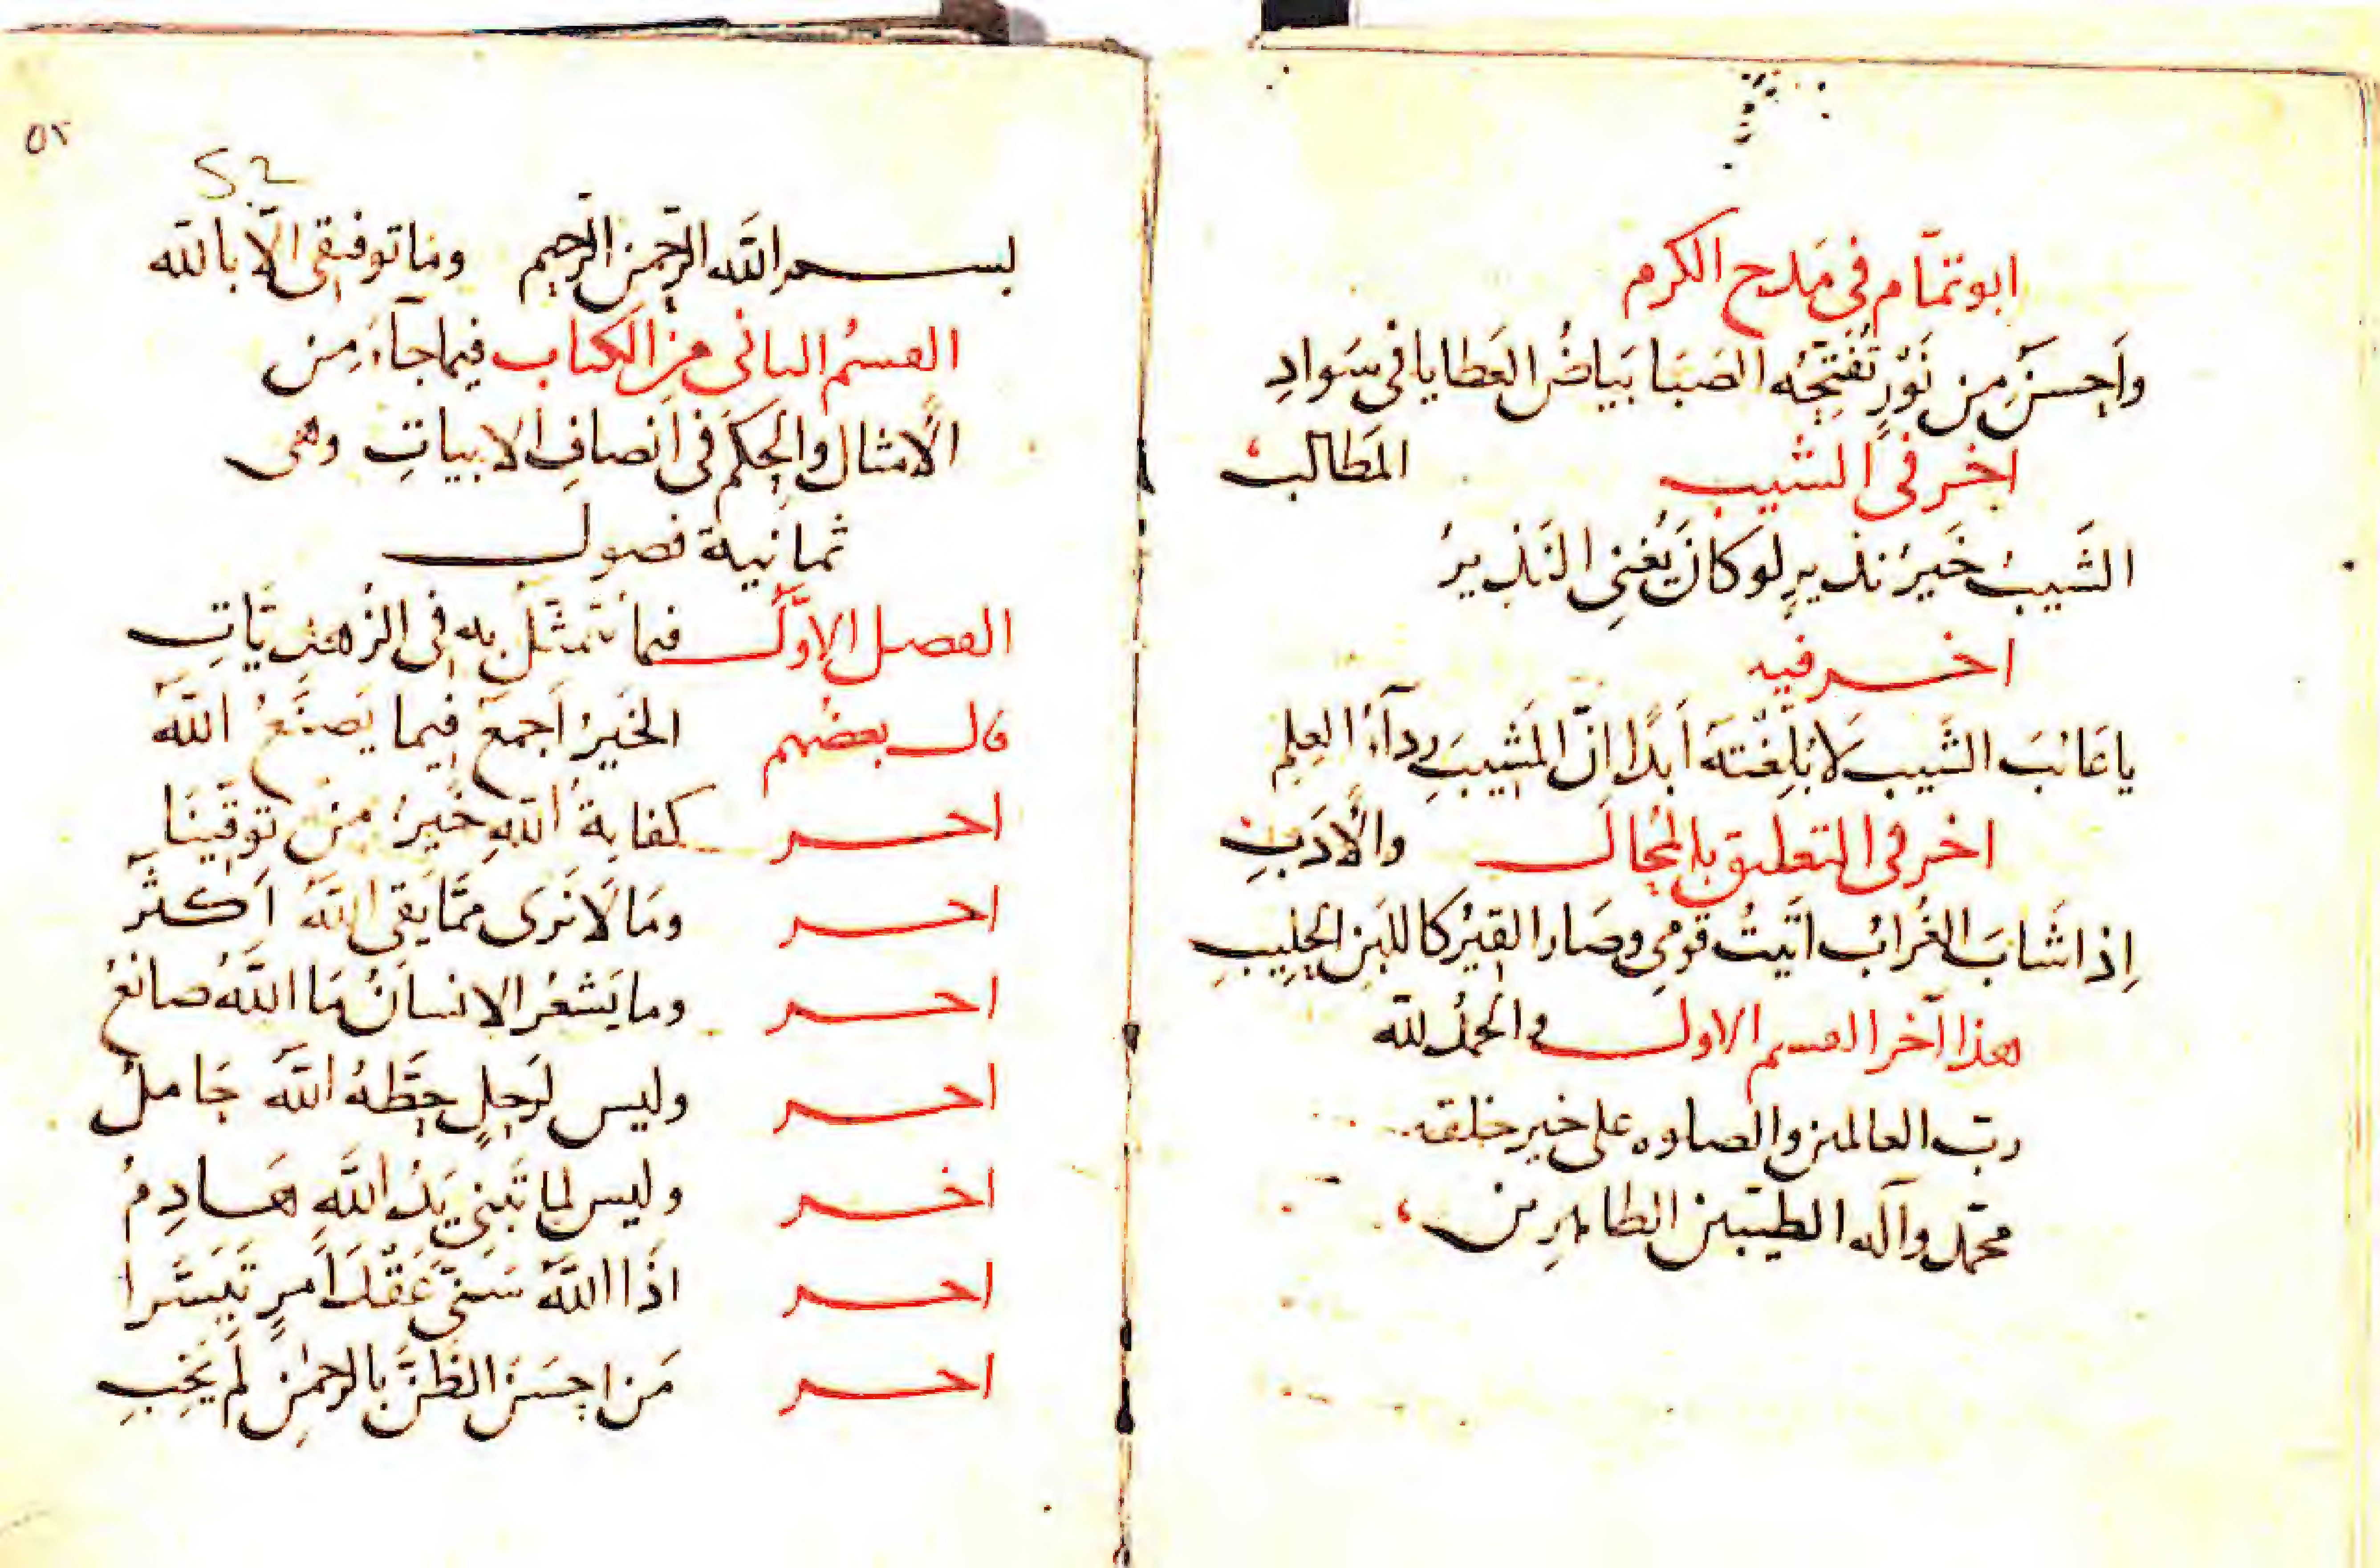 ابو تمّام في مَدح الكرم
واَحسَنُ مِن نَوْرٍ تُفَتِّحُه الصَبَا بَيَاضُ العَطايا في سَوادِ
المَطالب
اخر في الشيب
الشَيبُ خَيرُ نذيرٍ لو كانَ يُغنِى النَذيرُ
اخر فيه
يا عَائبَ الشَيب لا بُلِّغْتَهَ اَبدًا اِنّ المَشيبَ رِدآءُ العِلمِ
والاَدَبِ
اخر في التعليق بالمُحال
اِذا شَابَ الغُرابُ اتَيتُ قومِي وصَار القِيرُ كاللبَنِ الحَلِيبِ
هذا آخر القسم الاول والحمدُ لله
ربّ العالمين والصلوه على خير خلقه
محمّد وآله الطيّبين الطاهرين
٥٢
52
بسم الله الرّحمن الرّحيم وما توفيقى الاّ بالله
القسمُ الثانى من الكتاب فيما جآءَ مِن
الاَمثال والحِكَم في اَنصافِ الابياتِ وهى
ثمانية فصول
الفصل الاوّلُ فيما يُتَمَثّلُ بهِ في الزُهدِيّاتِ
قال بعضهم الخَيرُ اَجمعَ فيما يَصنَعُ اللهُ
اخر كفايةُ اللهِ خَيرُ مِن تَوَقّينَا
اخر ومَا لاَ نَرَى مِمَّا يَقى اللهُ اَكثَرُ
اخر وما يَشعُر الانسانُ مَا اللهُ صانعُ
اخر وليس لرَحلٍ حَطّهُ اللهُ حَاملُ
اخر وليس لِما تَبنِى يَدُ اللهِ هَادِمُ
اخر اذَا اللهُ سَنّى عَقْدَ اَمرٍ تَيَسَّرا
اخر مَن احسَنَ الظَنَّ بالرحمٰنِ لَم يَخِبِ